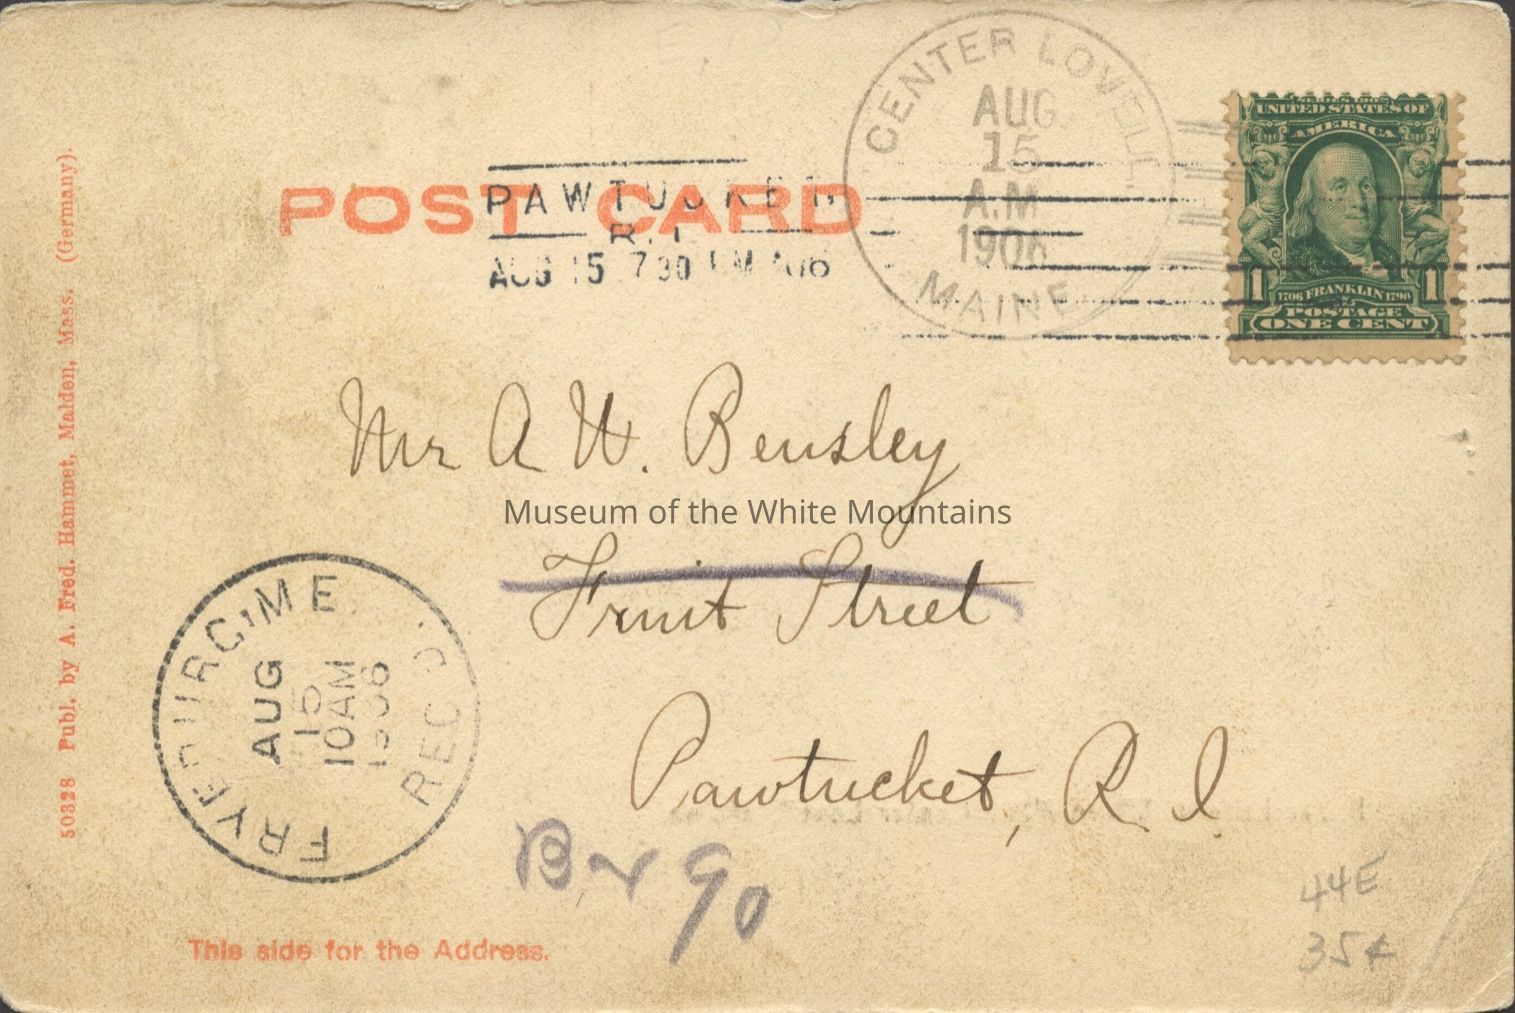 CENTER LOVELL
AUG
15
A.M
1906
MAINE
UNITED STATES OF
AMERICA
1 1706 FRANKLIN 1790 1
POSTAGE
ONE CENT
POST CARD
PAWTUCKET
R.I.
AUG 15 7 30 PM
Mr A W. Bensley
Museum of the White Mountains
Fruit Street
Pawtucket, R I.
FRYEBURG, ME.
REC'D
AUG
15
10AM
1906
90
44E
35¢
This side for the Address.
50328 Publ. by A. Fred. Hammet, Malden, Mass. (Germany).